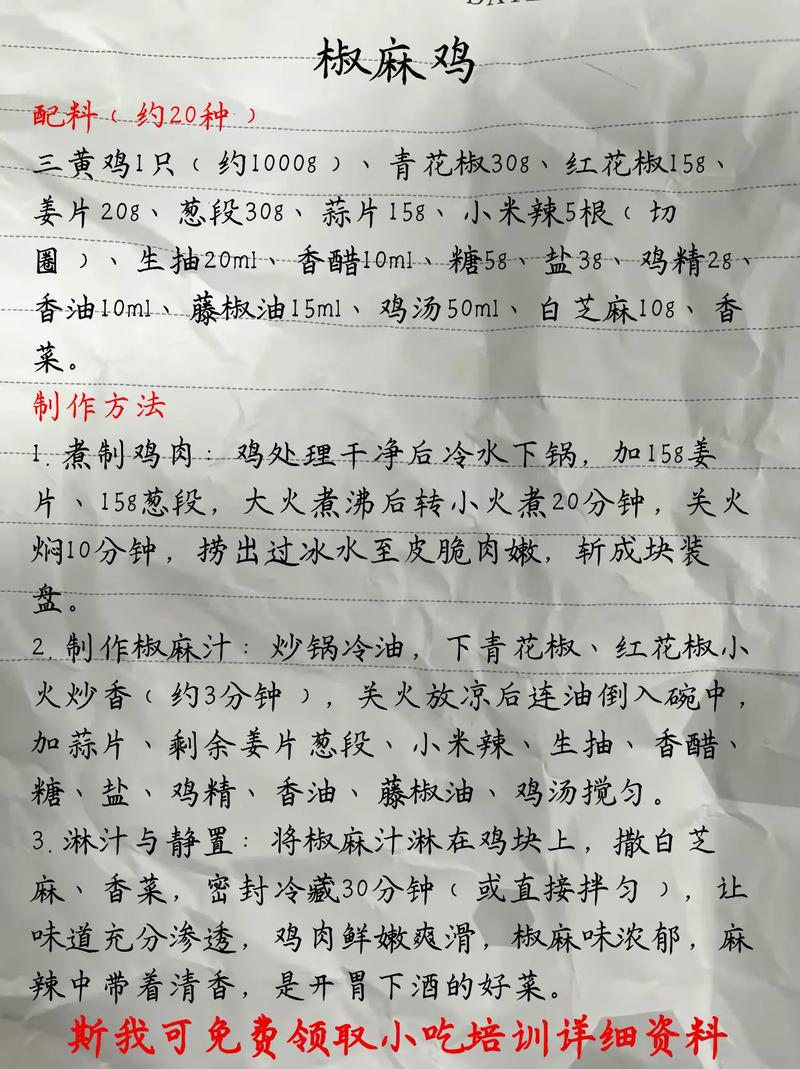 椒麻鸡
配料﹙约20种﹚
三黄鸡1只﹙约1000g﹚、青花椒30g、红花椒15g、
姜片20g、葱段30g、蒜片15g、小米辣5根﹙切
圈﹚、生抽20ml、香醋10ml、糖5g、盐3g、鸡精2g、
香油10ml、藤椒油15ml、鸡汤50ml、白芝麻10g、香
菜。
制作方法
1. 煮制鸡肉：鸡处理干净后冷水下锅，加15g姜
片、15g葱段，大火煮沸后转小火煮20分钟，关火
焖10分钟，捞出过冰水至皮脆肉嫩，斩成块装
盘。
2. 制作椒麻汁：炒锅冷油，下青花椒、红花椒小
火炒香﹙约3分钟﹚，关火放凉后连油倒入碗中，
加蒜片、剩余姜片葱段、小米辣、生抽、香醋、
糖、盐、鸡精、香油、藤椒油、鸡汤搅匀。
3. 淋汁与静置：将椒麻汁淋在鸡块上，撒白芝
麻、香菜，密封冷藏30分钟﹙或直接拌匀﹚，让
味道充分渗透，鸡肉鲜嫩爽滑，椒麻味浓郁，麻
辣中带着清香，是开胃下酒的好菜。
斯我可免费领取小吃培训详细资料